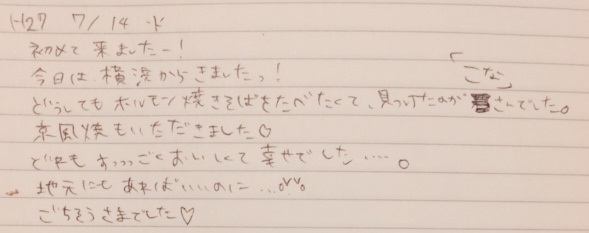 H27 7/14 火
初めて来ましたー!
今日は、横浜からきましたっ!
「こな」
どうしてもホルモン焼きそばをたべたくて、見つけたのがさんでした。
京風焼もいただきました♡
どれもすっっっごくおいしくて幸せでした....。
地元にもあればいいのに...。
ごちそうさまでした♡